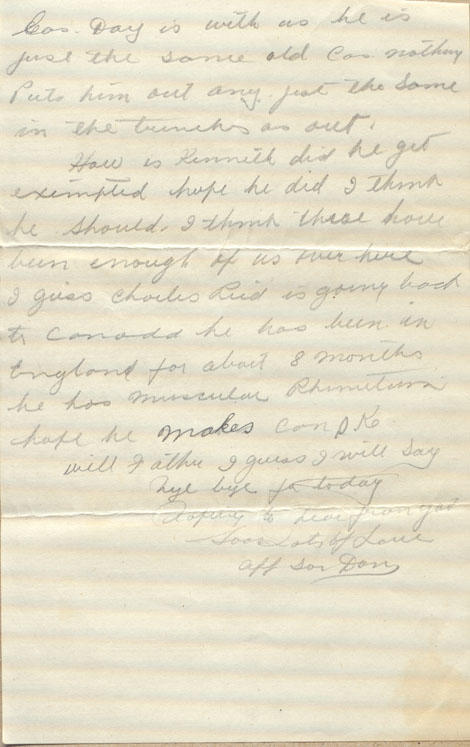 Cas. Day is with us he is
just the same old Cas. nothing
Puts him out any. just the Same
in the trenches as out.
How is Kenneth did he get
exempted hope he did I think
he should. I think there have
been enough of us over here
I guess Charles Reid is going back
to Canada he has been in
England for about 8 months
he has muscular
hope he makes can O K
will Father I guess I will say
bye bye for today
Hoping to hear from you
Soon Lots of Love
aff Son Dan